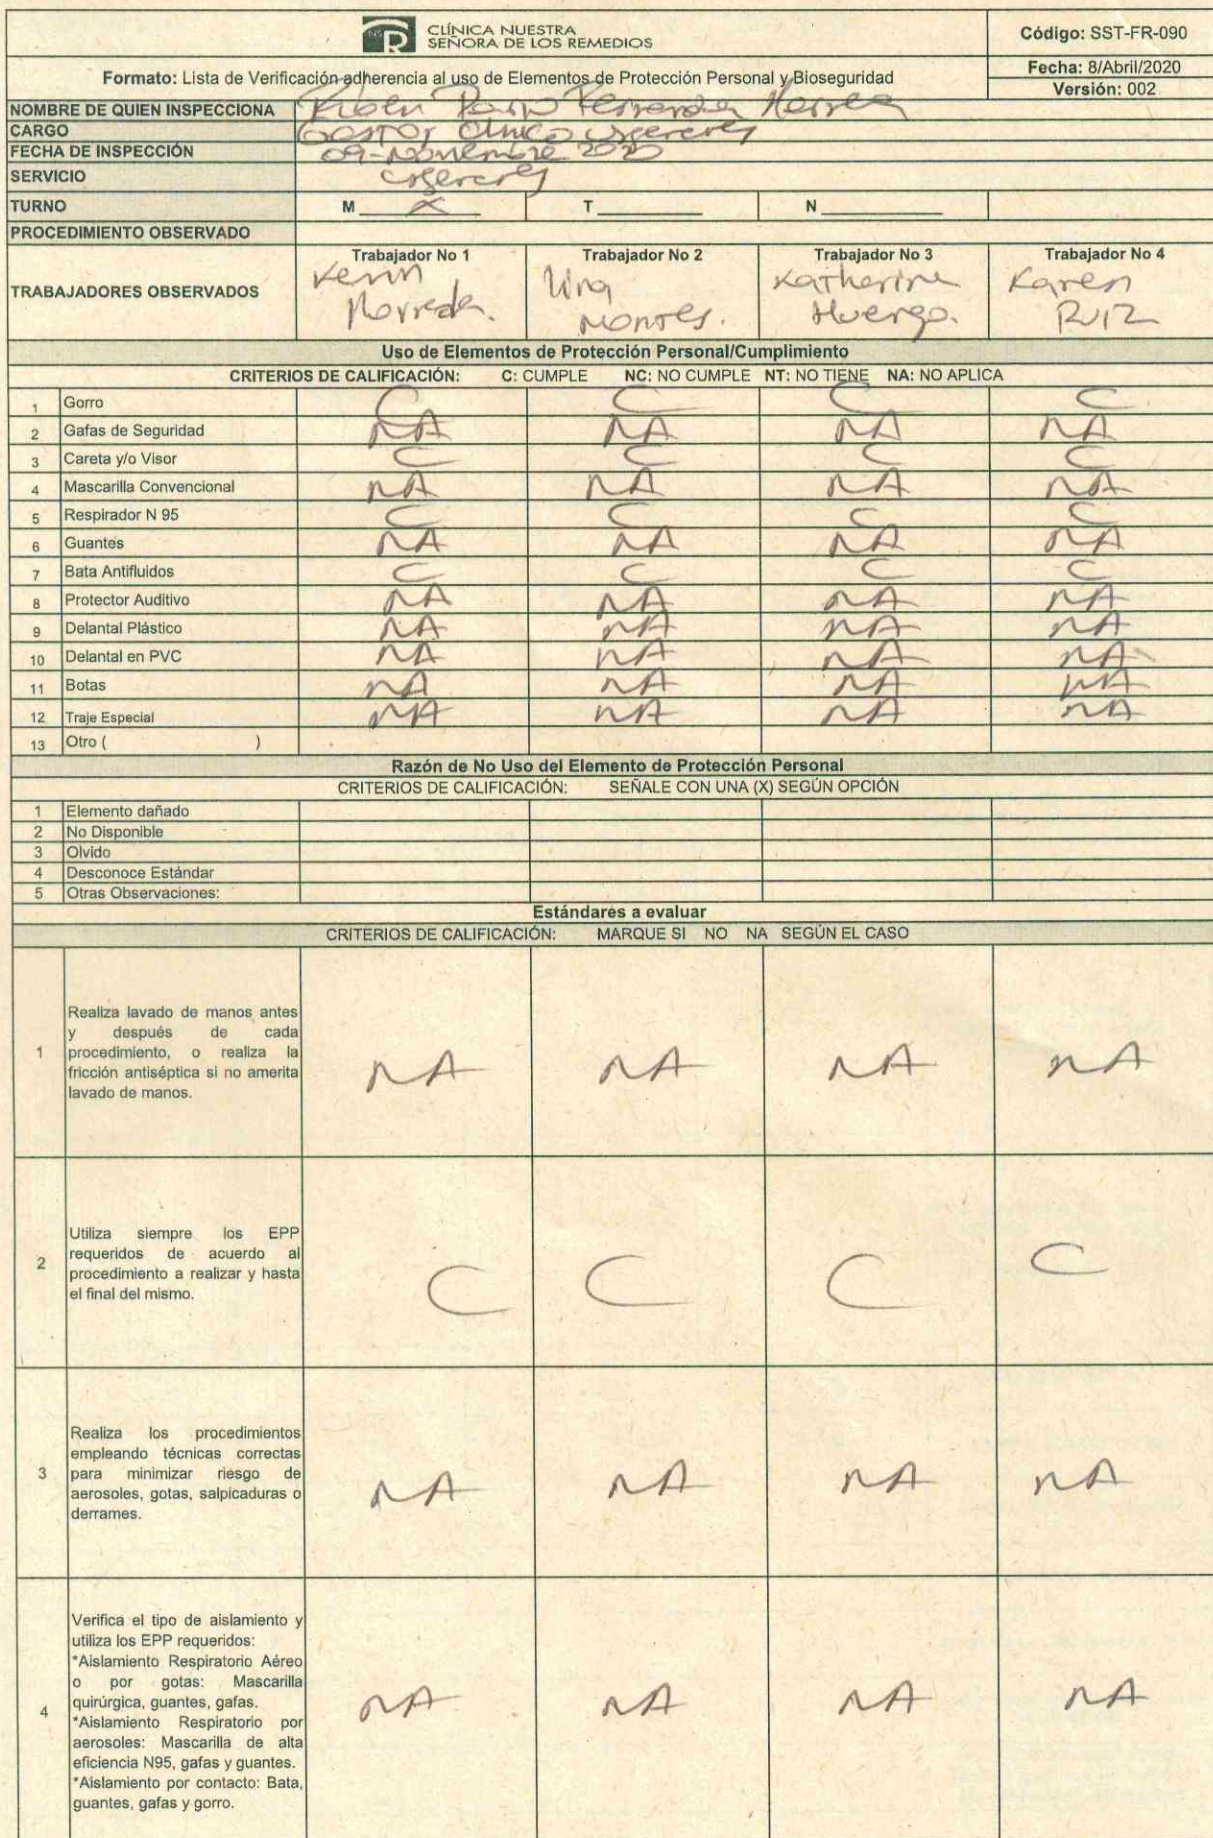 CLÍNICA NUESTRA
SEÑORA DE LOS REMEDIOS
Código: SST-FR-090
Formato: Lista de Verificación adherencia al uso de Elementos de Protección Personal y Bioseguridad
Fecha: 8/Abril/2020
Versión: 002
NOMBRE DE QUIEN INSPECCIONA Ruben Herrera
CARGO Gestor Clinico Urgencias
FECHA DE INSPECCIÓN 09-Noviembre 2020
SERVICIO Urgencias
TURNO M X T N
PROCEDIMIENTO OBSERVADO
TRABAJADORES OBSERVADOS
Trabajador No 1 Trabajador No 2 Trabajador No 3 Trabajador No 4
Kevin Lina Katherine Karen
Montes. Huergo. Ruiz
Uso de Elementos de Protección Personal/Cumplimiento
CRITERIOS DE CALIFICACIÓN: C: CUMPLE NC: NO CUMPLE NT: NO TIENE NA: NO APLICA
1 Gorro C C C C
2 Gafas de Seguridad NA NA NA NA
3 Careta y/o Visor C C C C
4 Mascarilla Convencional NA NA NA NA
5 Respirador N 95 C C C C
6 Guantes NA NA NA NA
7 Bata Antifluidos C C C C
8 Protector Auditivo NA NA NA NA
9 Delantal Plástico NA NA NA NA
10 Delantal en PVC NA NA NA NA
11 Botas NA NA NA NA
12 Traje Especial NA NA NA NA
13 Otro ( )
Razón de No Uso del Elemento de Protección Personal
CRITERIOS DE CALIFICACIÓN: SEÑALE CON UNA (X) SEGÚN OPCIÓN
1 Elemento dañado
2 No Disponible
3 Olvido
4 Desconoce Estándar
5 Otras Observaciones:
Estándares a evaluar
CRITERIOS DE CALIFICACIÓN: MARQUE SI NO NA SEGÚN EL CASO
1
Realiza lavado de manos antes
y después de cada
procedimiento, o realiza la
fricción antiséptica si no amerita
lavado de manos.
NA NA NA NA
2
Utiliza siempre los EPP
requeridos de acuerdo al
procedimiento a realizar y hasta
el final del mismo.
C C C C
3
Realiza los procedimientos
empleando técnicas correctas
para minimizar riesgo de
aerosoles, gotas, salpicaduras o
derrames.
NA NA NA NA
4
Verifica el tipo de aislamiento y
utiliza los EPP requeridos:
*Aislamiento Respiratorio Aéreo
o por gotas: Mascarilla
quirúrgica, guantes, gafas.
*Aislamiento Respiratorio por
aerosoles: Mascarilla de alta
eficiencia N95, gafas y guantes.
*Aislamiento por contacto: Bata,
guantes, gafas y gorro.
NA NA NA NA